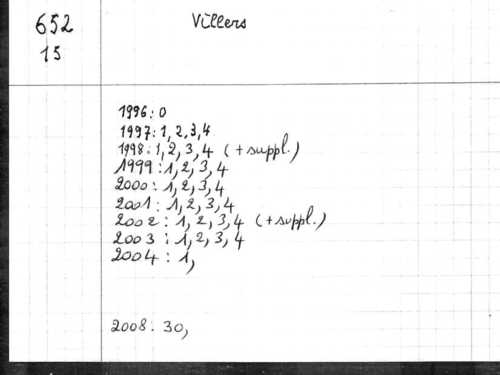 652
15
Villers
1996: 0
1997: 1, 2, 3, 4
1998: 1, 2, 3, 4 (+ suppl.)
1999: 1, 2, 3, 4
2000: 1, 2, 3, 4
2001: 1, 2, 3, 4
2002: 1, 2, 3, 4 (+ suppl.)
2003: 1, 2, 3, 4
2004: 1,
2008: 30,